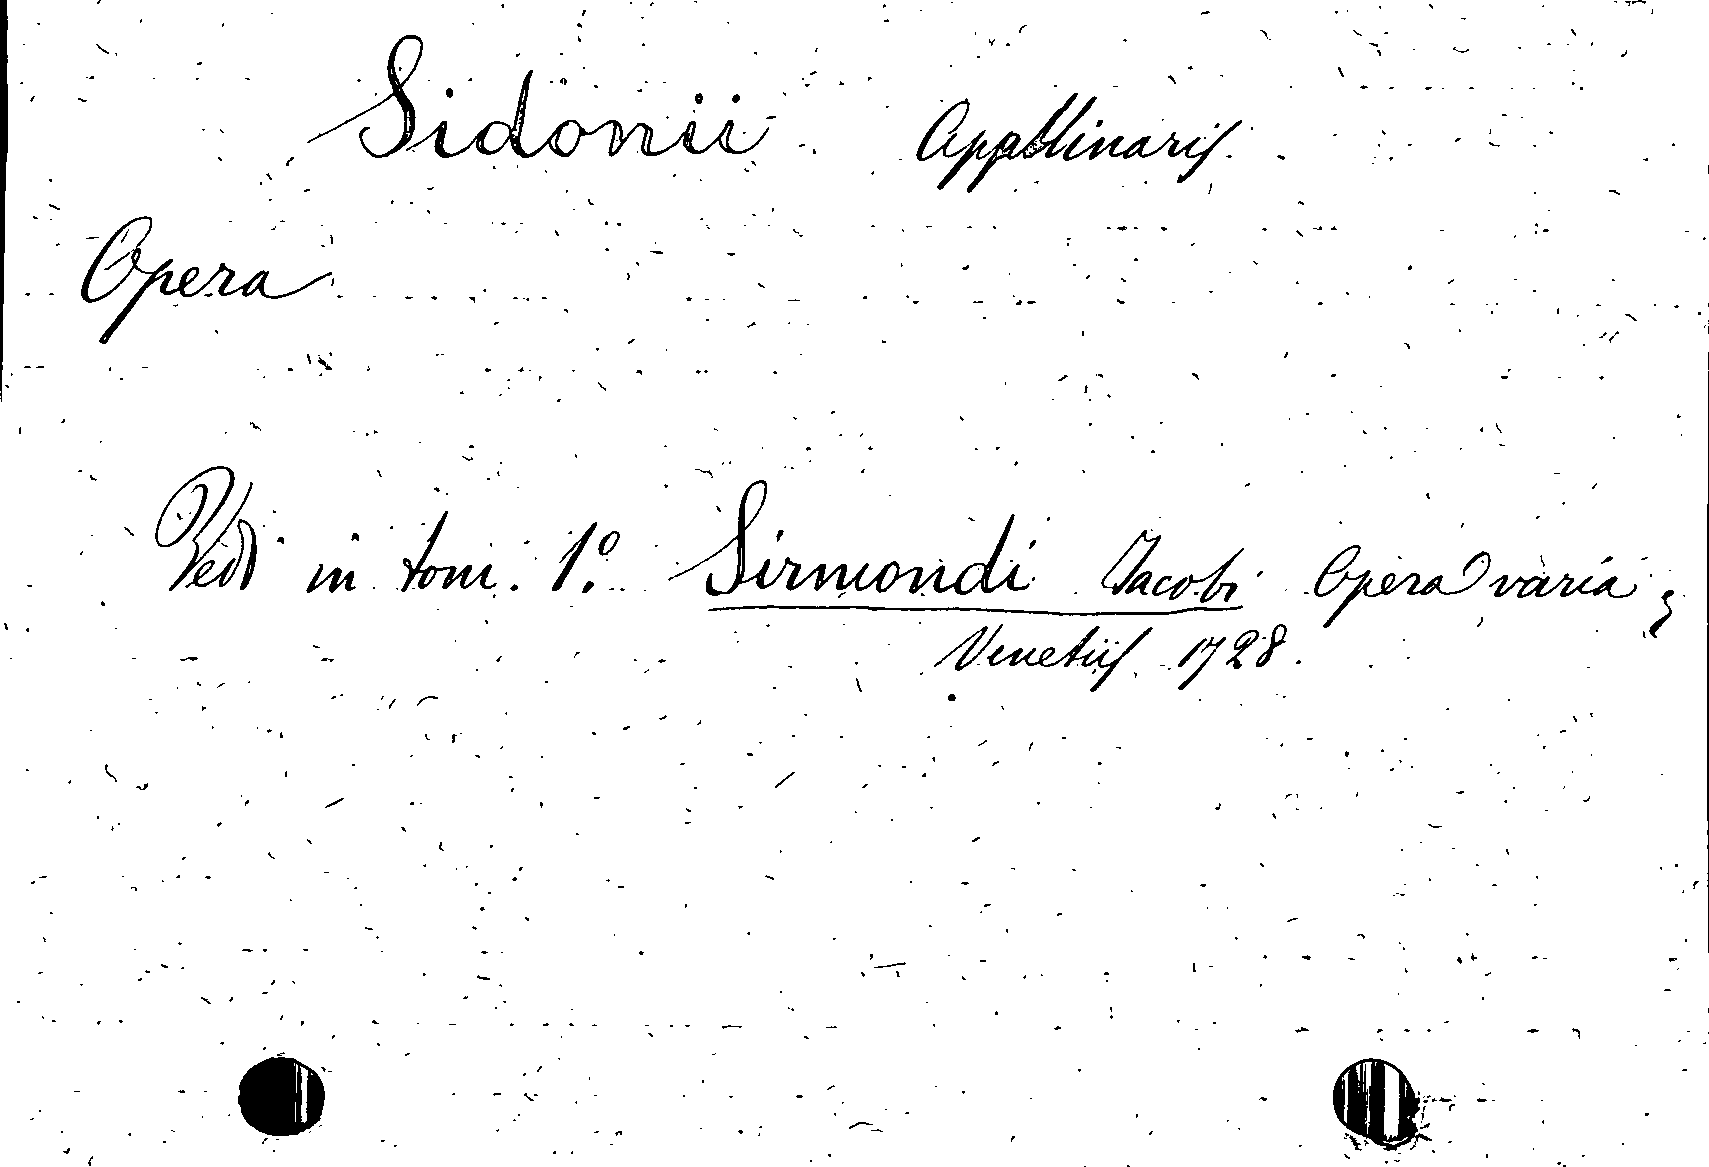 Sidonii Appollinaris
Opera
Vedi in tom. 1º. Sirmondi Jacobi Opera varia,
Venetiis 1728.